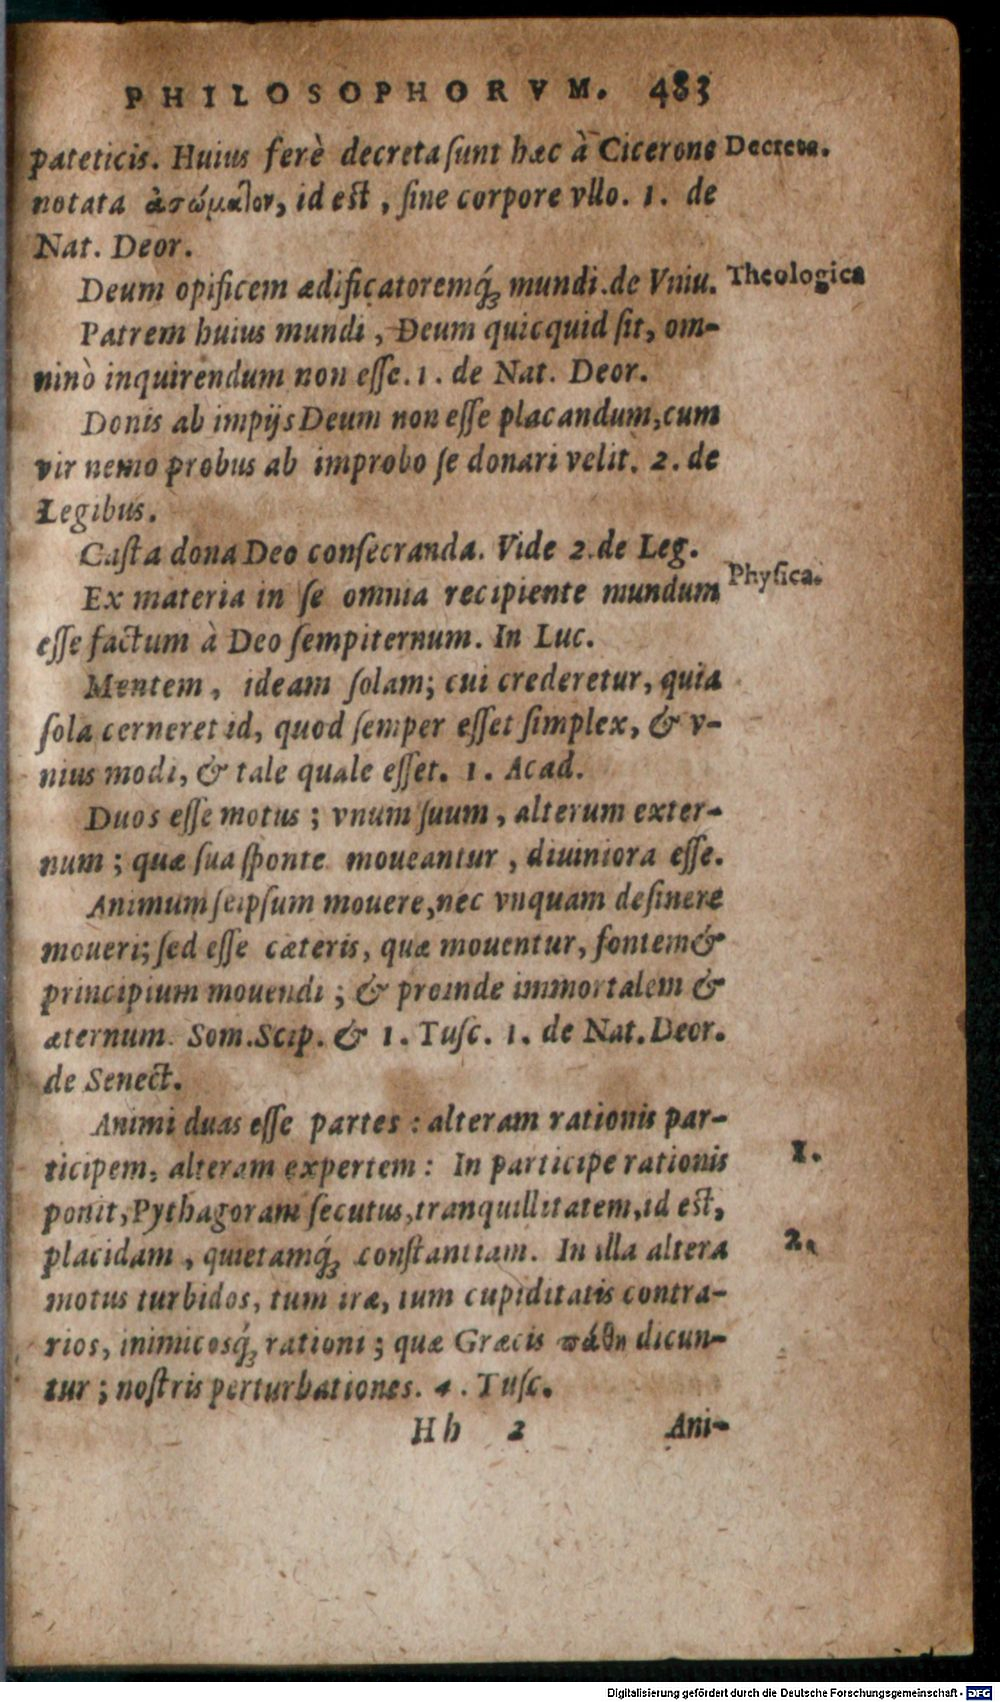 PHILOSOPHORVM. 483
pateticis. Huius ferè decreta ſunt hæc à Cicerone Decreta.
notata ἀσώματον, id eſt, ſine corpore vllo. 1. de
Nat. Deor.
Deum opificem ædificatoremq́; mundi. de Vniu. Theologica
Patrem huius mundi, Deum quicquid ſit, om-
ninò inquirendum non eſſe. 1. de Nat. Deor.
Donis ab impijs Deum non eſſe placandum, cum
vir nemo probus ab improbo ſe donari velit. 2. de
Legibus.
Caſta dona Deo conſecranda. Vide 2. de Leg.
Physica.
Ex materia in ſe omnia recipiente mundum
eſſe factum à Deo ſempiternum. In Luc.
Mentem, ideam ſolam; cui crederetur, quia
ſola cerneret id, quod ſemper eſſet ſimplex, & v-
nius modi, & tale quale eſſet. 1. Acad.
Duos eſſe motus; vnum ſuum, alterum exter-
num; quæ ſua ſponte moueantur, diuiniora eſſe.
Animum ſeipſum mouere, nec vnquam deſinere
moueri; ſed eſſe cæteris, quæ mouentur, fontem &
principium mouendi; & proinde immortalem &
æternum. Som. Scip. & 1. Tuſc. 1. de Nat. Deor.
de Senect.
Animi duas eſſe partes: alteram rationis par-
ticipem, alteram expertem: In participe rationis 1.
ponit, Pythagoram ſecutus, tranquillitatem, id eſt,
placidam, quietamq́; conſtantiam. In illa altera 2.
motus turbidos, tum iræ, tum cupiditatis contra-
rios, inimicosq́; rationi; quæ Græcis πάθη dicun-
tur; noſtris perturbationes. 4. Tuſc.
Hh 2 Ani-
Digitalisierung gefördert durch die Deutsche Forschungsgemeinschaft - DFG